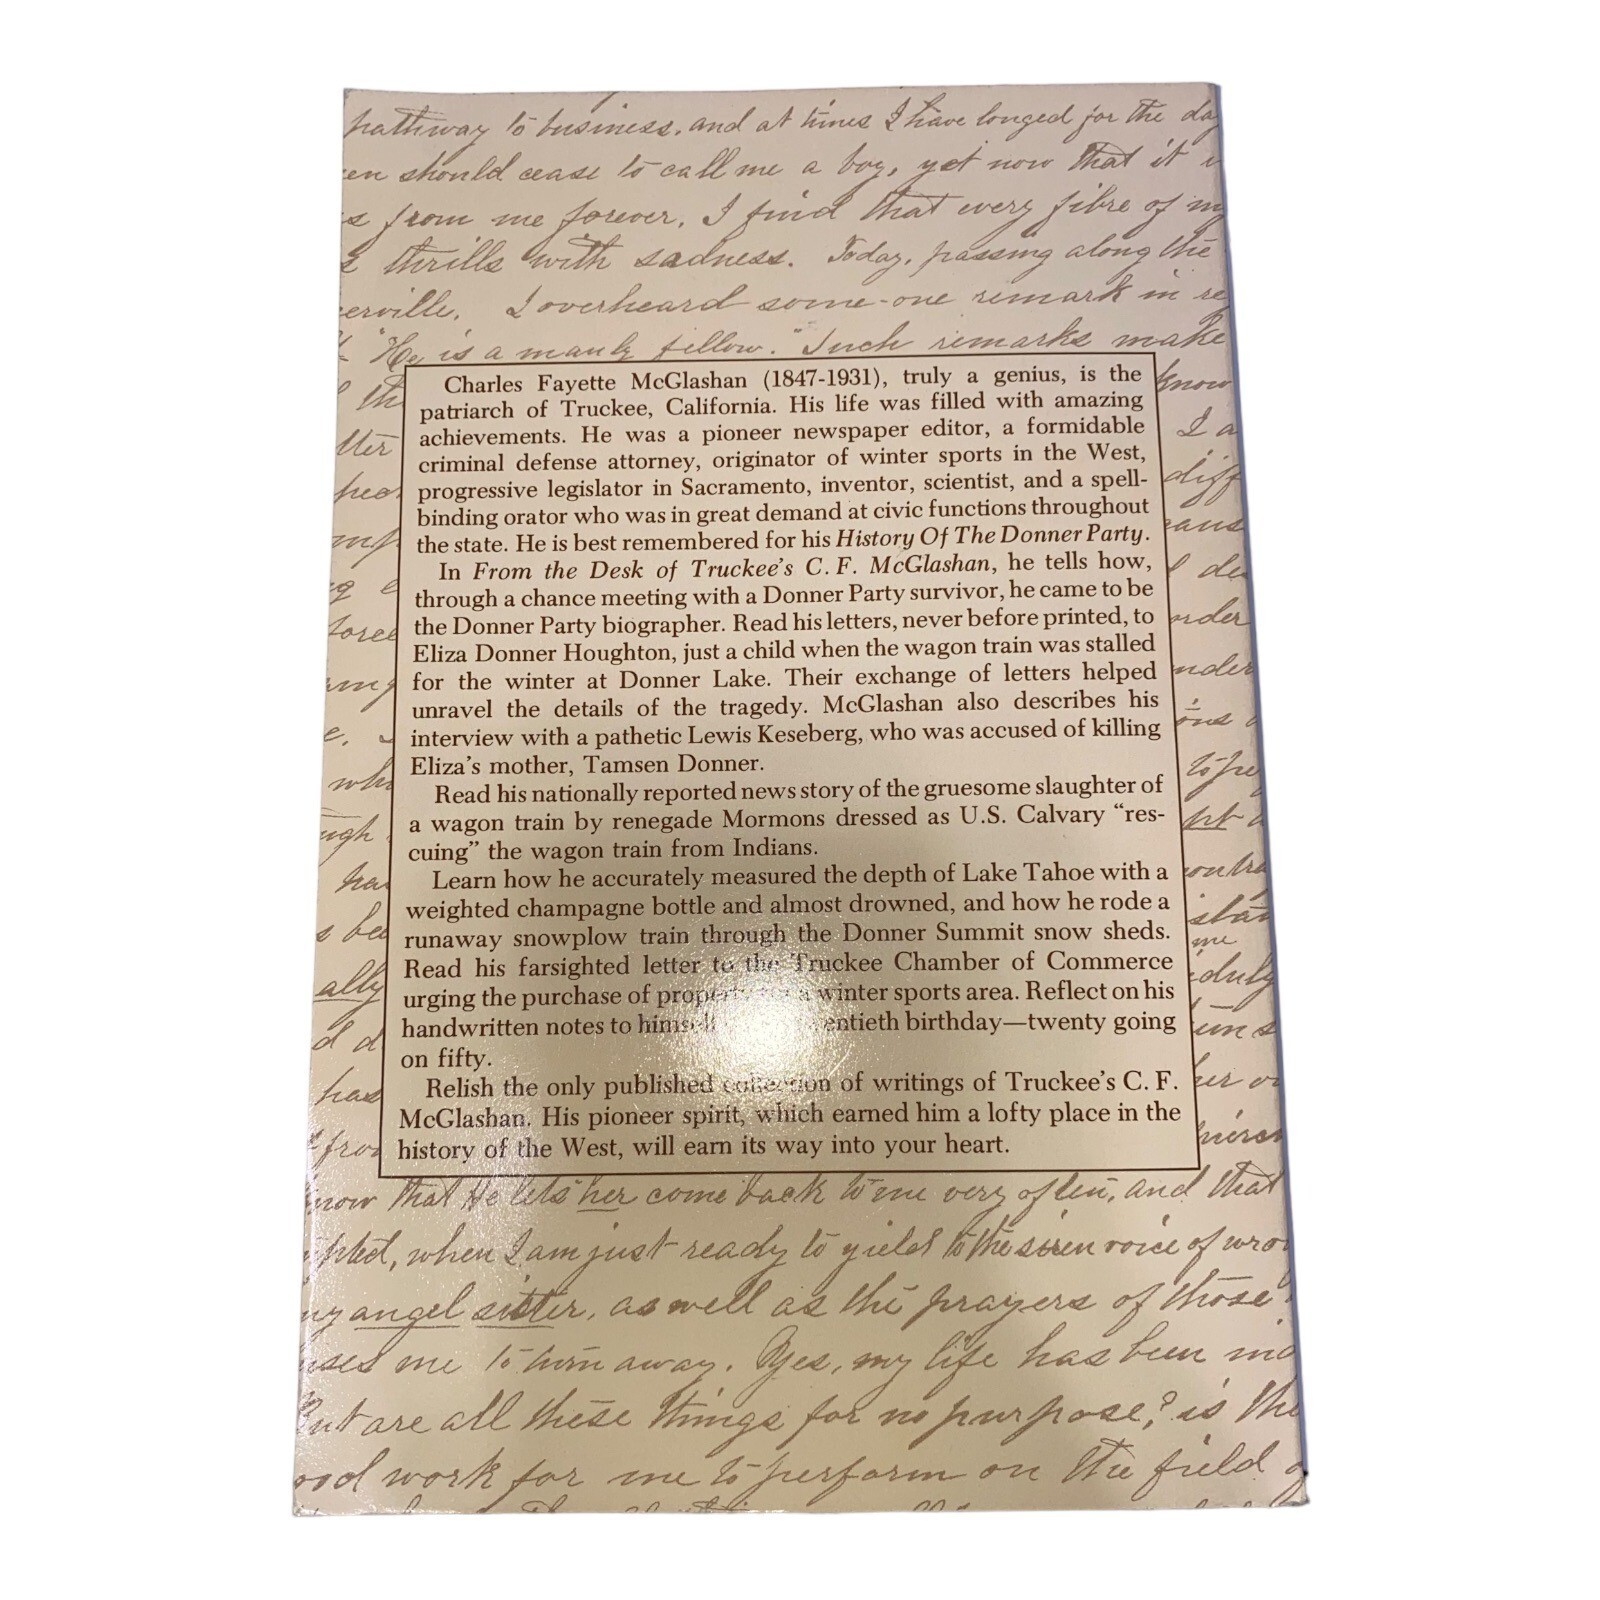 pathway to business, and at times I have longed for the day
en should cease to call me a boy, yet now that it
s from me forever, I find that every fibre of my
thrills with sadness. Today, passing along the
erville, I overheard some-one remark in re
"He is a manly fellow." Such remarks make
Charles Fayette McGlashan (1847-1931), truly a genius, is the
patriarch of Truckee, California. His life was filled with amazing
achievements. He was a pioneer newspaper editor, a formidable
criminal defense attorney, originator of winter sports in the West,
progressive legislator in Sacramento, inventor, scientist, and a spell-
binding orator who was in great demand at civic functions throughout
the state. He is best remembered for his History Of The Donner Party.
In From the Desk of Truckee's C. F. McGlashan, he tells how,
through a chance meeting with a Donner Party survivor, he came to be
the Donner Party biographer. Read his letters, never before printed, to
Eliza Donner Houghton, just a child when the wagon train was stalled
for the winter at Donner Lake. Their exchange of letters helped
unravel the details of the tragedy. McGlashan also describes his
interview with a pathetic Lewis Keseberg, who was accused of killing
Eliza's mother, Tamsen Donner.
Read his nationally reported news story of the gruesome slaughter of
a wagon train by renegade Mormons dressed as U.S. Calvary "res-
cuing" the wagon train from Indians.
Learn how he accurately measured the depth of Lake Tahoe with a
weighted champagne bottle and almost drowned, and how he rode a
runaway snowplow train through the Donner Summit snow sheds.
Read his farsighted letter to the Truckee Chamber of Commerce
urging the purchase of property for a winter sports area. Reflect on his
handwritten notes to himself entieth birthday—twenty going
on fifty.
Relish the only published collection of writings of Truckee's C. F.
McGlashan. His pioneer spirit, which earned him a lofty place in the
history of the West, will earn its way into your heart.
know that He lets her come back to me very often, and that
when I am just ready to yield to the siren voice of wro
my angel sister, as well as the prayers of those
me to turn away. Yes, my life has been
But are all these things for no purpose? is the
ood work for me to perform on the field